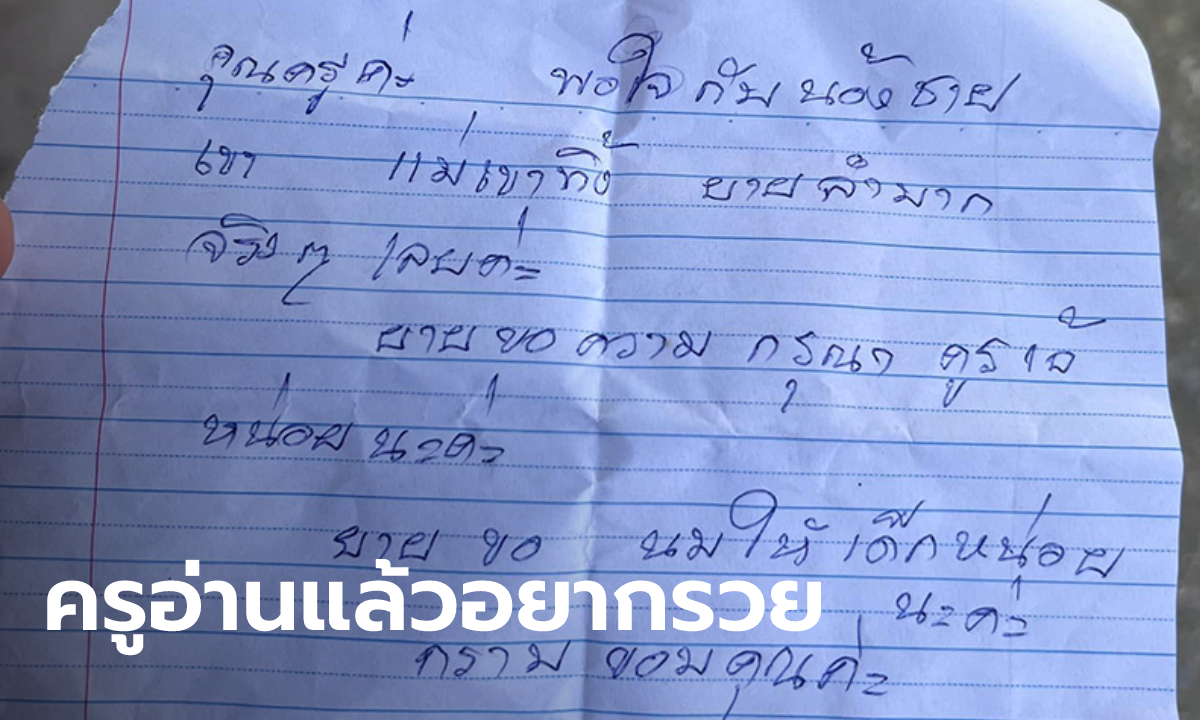 คุณครูค่ะ พอใจกับน้องชาย
เขา แม่เขาทิ้ง ยายลำมาก
จริงๆ เลยค่ะ
ยายขอความกรุณา คูรเจ้
หน่อยนะค่ะ
ยายขอ นมให้เด็กหน่อย
นะค่ะ
กราบ ขอบคุณค่ะ
ครูอ่านแล้วอยากรวย